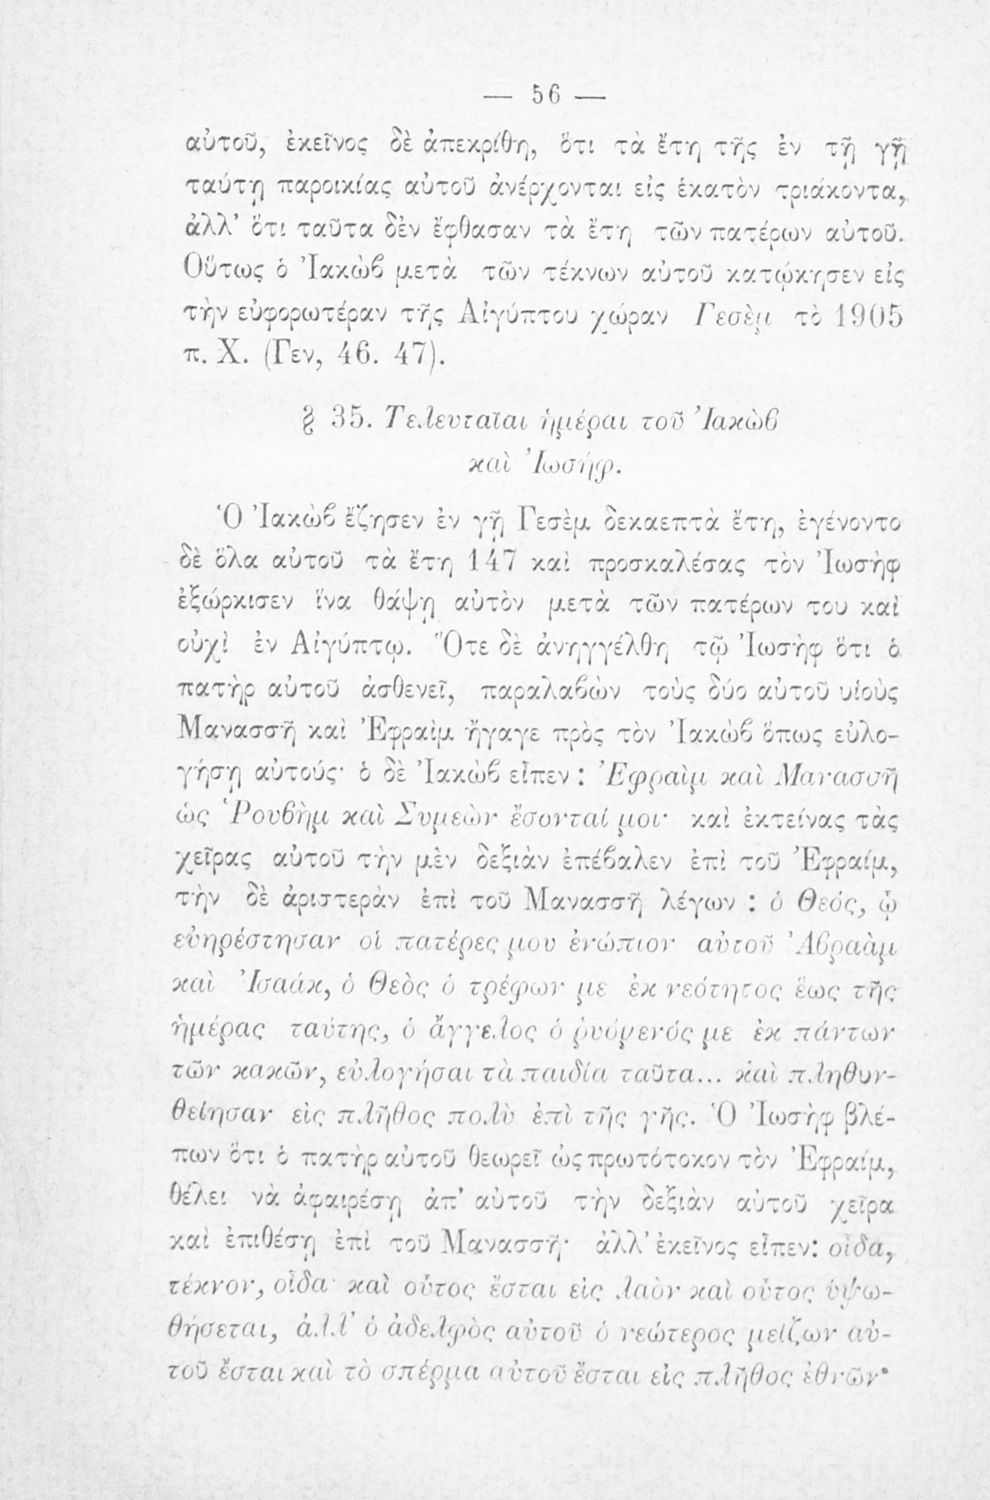 — 56 —
αὐτοῦ, ἐκεῖνος δὲ ἀπεκρίθη, ὅτι τὰ ἔτη τῆς ἐν τῇ γῇ
ταύτῃ παροικίας αὐτοῦ ἀνέρχονται εἰς ἑκατὸν τριάκοντα,
ἀλλ' ὅτι ταῦτα δὲν ἔφθασαν τὰ ἔτη τῶν πατέρων αὐτοῦ.
Οὕτως ὁ Ἰακὼβ μετὰ τῶν τέκνων αὐτοῦ κατῴκησεν εἰς
τὴν εὐφορωτέραν τῆς Αἰγύπτου χώραν Γεσὲμ τὸ 1905
π. Χ. (Γεν, 46. 47).
§ 35. Τελευταῖαι ἡμέραι τοῦ Ἰακὼβ
καὶ Ἰωσήφ.
Ὁ Ἰακὼβ ἔζησεν ἐν γῇ Γεσὲμ δεκαεπτὰ ἔτη, ἐγένοντο
δὲ ὅλα αὐτοῦ τὰ ἔτη 147 καὶ προσκαλέσας τὸν Ἰωσὴφ
ἐξώρκισεν ἵνα θάψῃ αὐτὸν μετὰ τῶν πατέρων του καὶ
οὐχὶ ἐν Αἰγύπτῳ. Ὅτε δὲ ἀνηγγέλθη τῷ Ἰωσὴφ ὅτι ὁ
πατὴρ αὐτοῦ ἀσθενεῖ, παραλαβὼν τοὺς δύο αὐτοῦ υἱοὺς
Μανασσῆ καὶ Ἐφραὶμ ἤγαγε πρὸς τὸν Ἰακὼβ ὅπως εὐλο-
γήσῃ αὐτούς· ὁ δὲ Ἰακὼβ εἶπεν : Ἐφραὶμ καὶ Μανασσῆ
ὡς Ῥουβὴμ καὶ Συμεὼν ἔσονταί μοι· καὶ ἐκτείνας τὰς
χεῖρας αὐτοῦ τὴν μὲν δεξιὰν ἐπέβαλεν ἐπὶ τοῦ Ἐφραίμ,
τὴν δὲ ἀριστερὰν ἐπὶ τοῦ Μανασσῆ λέγων : ὁ Θεός, ᾧ
εὐηρέστησαν οἱ πατέρες μου ἐνώπιον αὐτοῦ Ἀβραὰμ
καὶ Ἰσαάκ, ὁ Θεὸς ὁ τρέφων με ἐκ νεότητος ἕως τῆς
ἡμέρας ταύτης, ὁ ἄγγελος ὁ ῥυόμενός με ἐκ πάντων
τῶν κακῶν, εὐλογήσαι τὰ παιδία ταῦτα... καὶ πληθυν-
θείησαν εἰς πλῆθος πολὺ ἐπὶ τῆς γῆς. Ὁ Ἰωσὴφ βλέ-
πων ὅτι ὁ πατὴρ αὐτοῦ θεωρεῖ ὡς πρωτότοκον τὸν Ἐφραίμ,
θέλει νὰ ἀφαιρέσῃ ἀπ' αὐτοῦ τὴν δεξιὰν αὐτοῦ χεῖρα
καὶ ἐπιθέσῃ ἐπὶ τοῦ Μανασσῆ· ἀλλ' ἐκεῖνος εἶπεν: οἶδα,
τέκνον, οἶδα· καὶ οὗτος ἔσται εἰς λαὸν καὶ οὗτος ὑψω-
θήσεται, ἀλλ' ὁ ἀδελφὸς αὐτοῦ ὁ νεώτερος μείζων αὐ-
τοῦ ἔσται καὶ τὸ σπέρμα αὐτοῦ ἔσται εἰς πλῆθος ἐθνῶν·